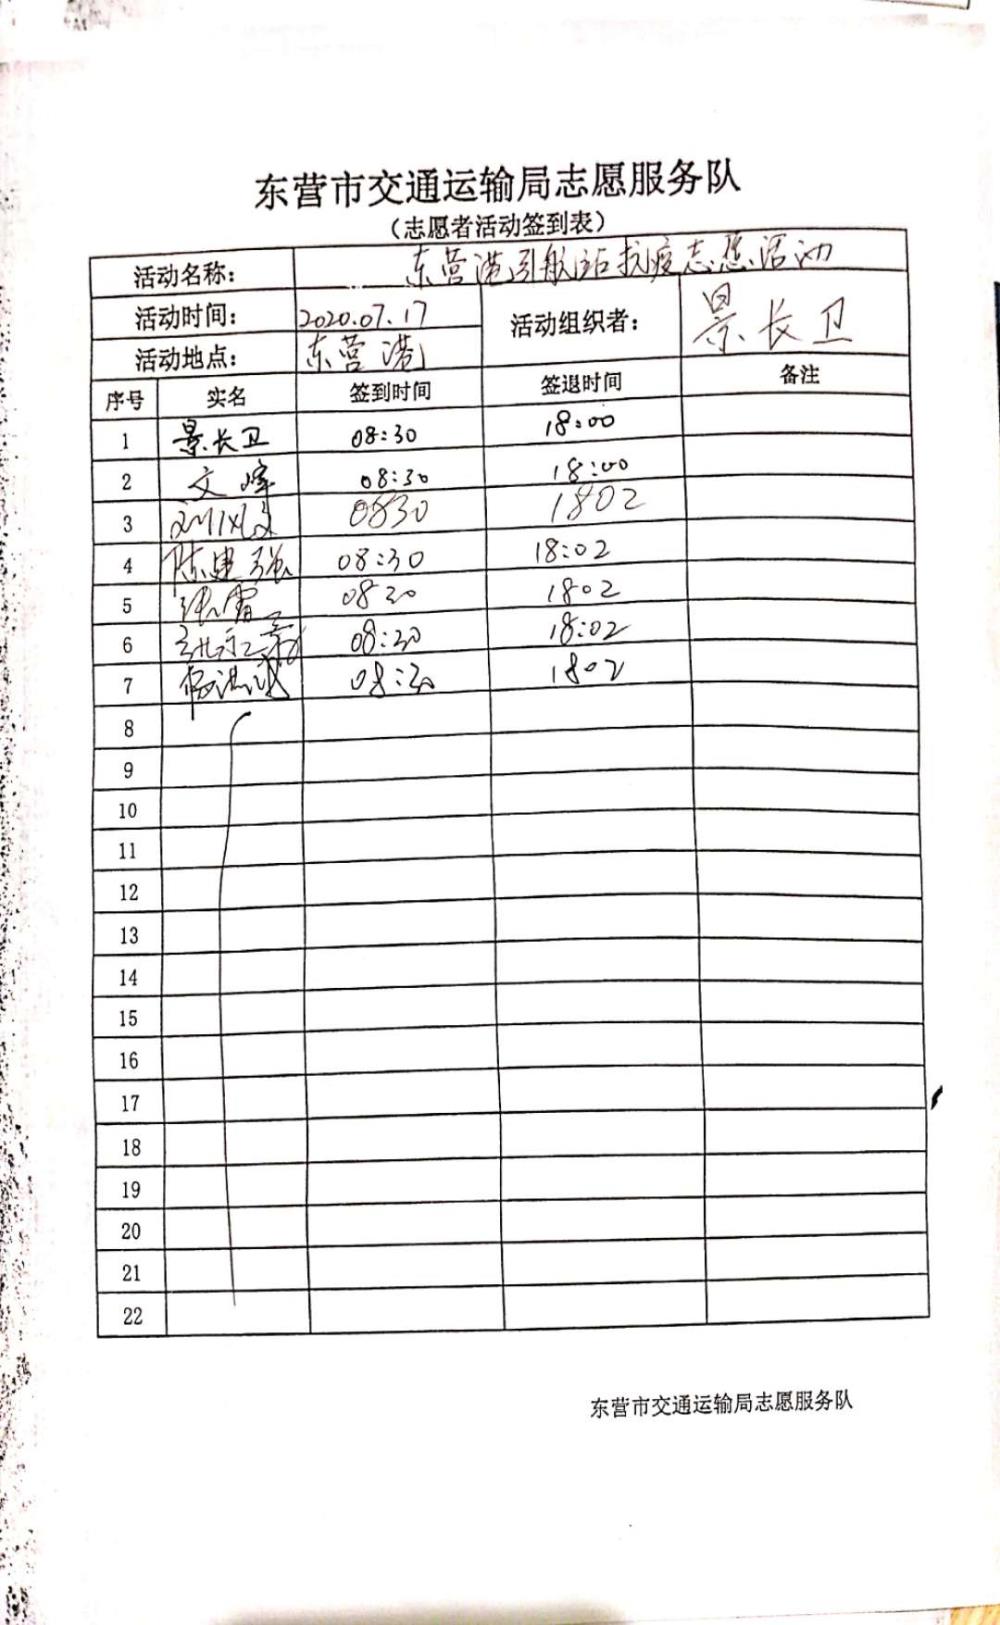 东营市交通运输局志愿服务队
（志愿者活动签到表）
活动名称： 东营港引航站抗疫志愿活动
活动时间： 2020.07.17 活动组织者： 景长卫
活动地点： 东营港
序号 实名 签到时间 签退时间 备注
1 景长卫 08:30 18:00
2 文峰 08:30 18:00
3 0830 1802
4 陈建强 08:30 18:02
5 0830 1802
6 08:30 18:02
7 08:30 1802
8
9
10
11
12
13
14
15
16
17
18
19
20
21
22
东营市交通运输局志愿服务队